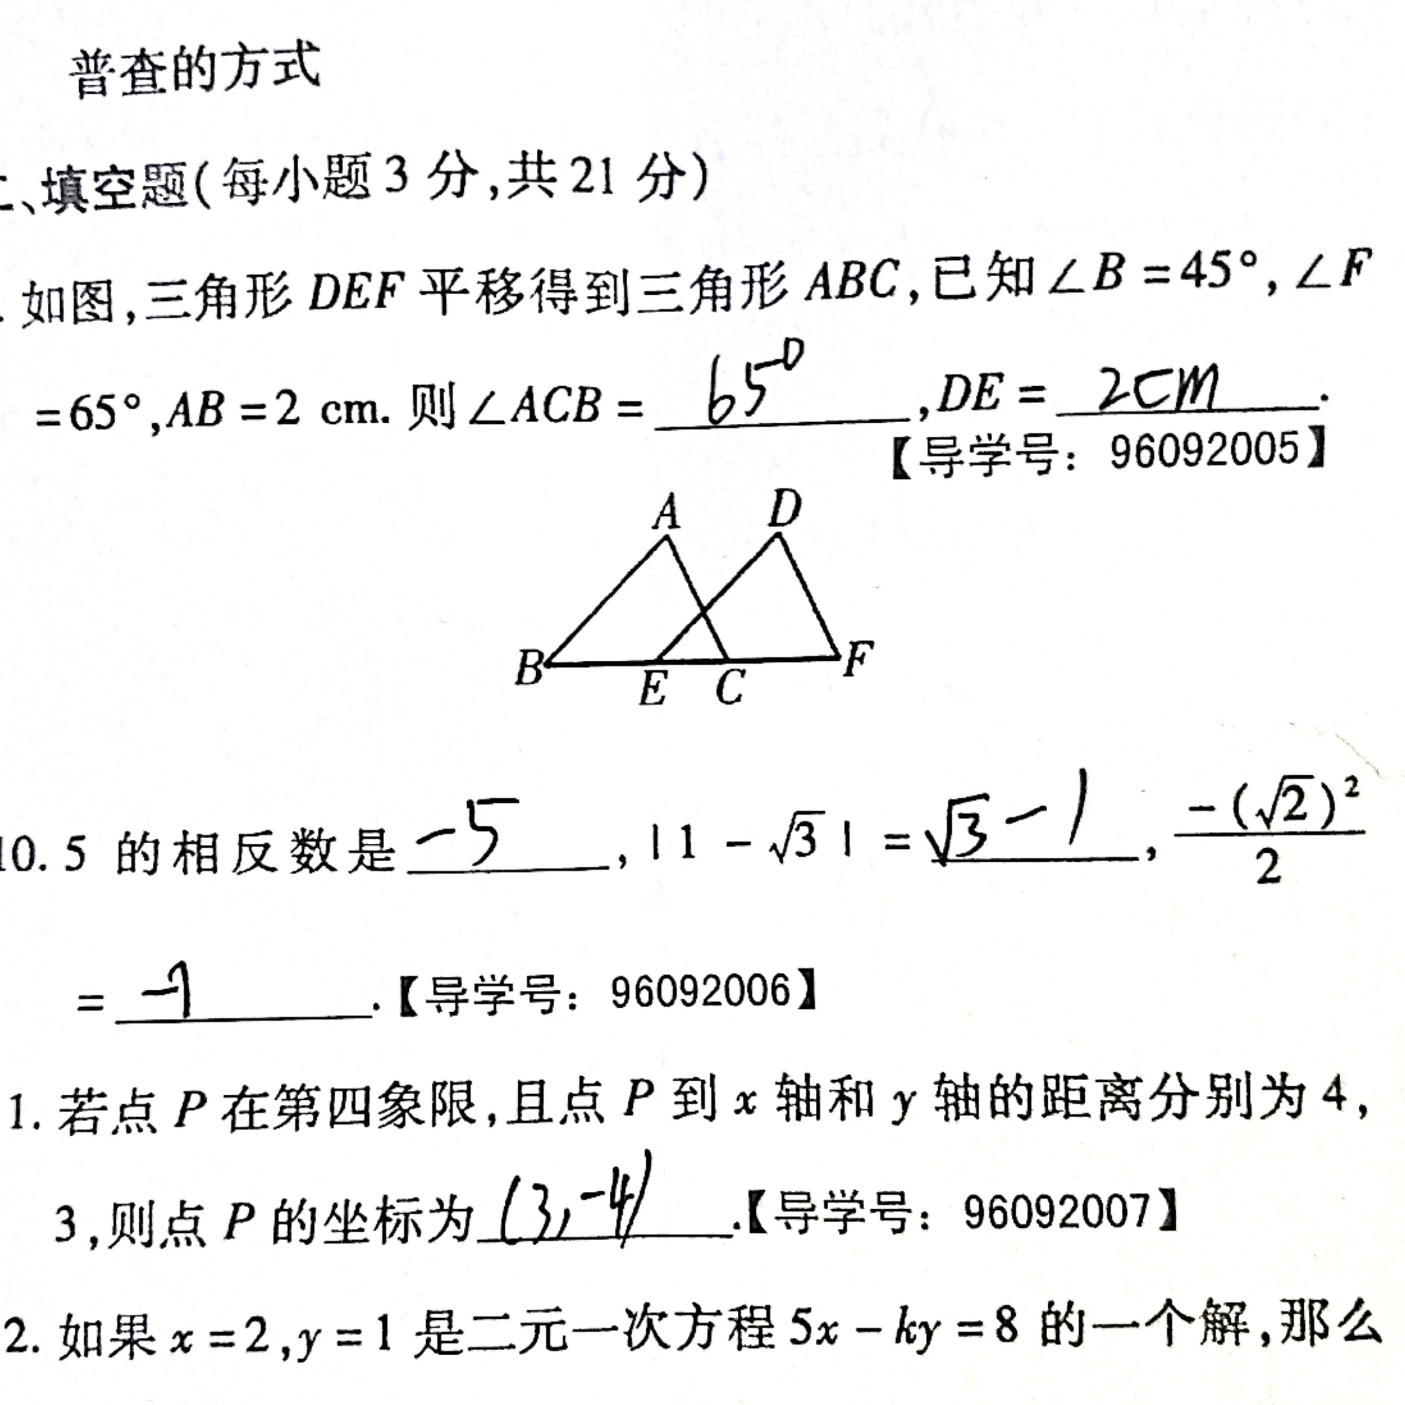 普查的方式
二、填空题(每小题3分,共21分)
. 如图,三角形DEF平移得到三角形ABC,已知∠B=45°,∠F
=65°,AB=2 cm.则∠ACB= 65° ,DE= 2cm .
【导学号: 96092005】
A D
B E C F
10. 5 的相反数是 -5 ,|1-√3|= √3-1 , -(√2)²/2
= -1 .【导学号: 96092006】
1. 若点P在第四象限,且点P到x轴和y轴的距离分别为4,
3,则点P的坐标为 (3,-4) .【导学号: 96092007】
2. 如果x=2,y=1是二元一次方程5x-ky=8的一个解,那么